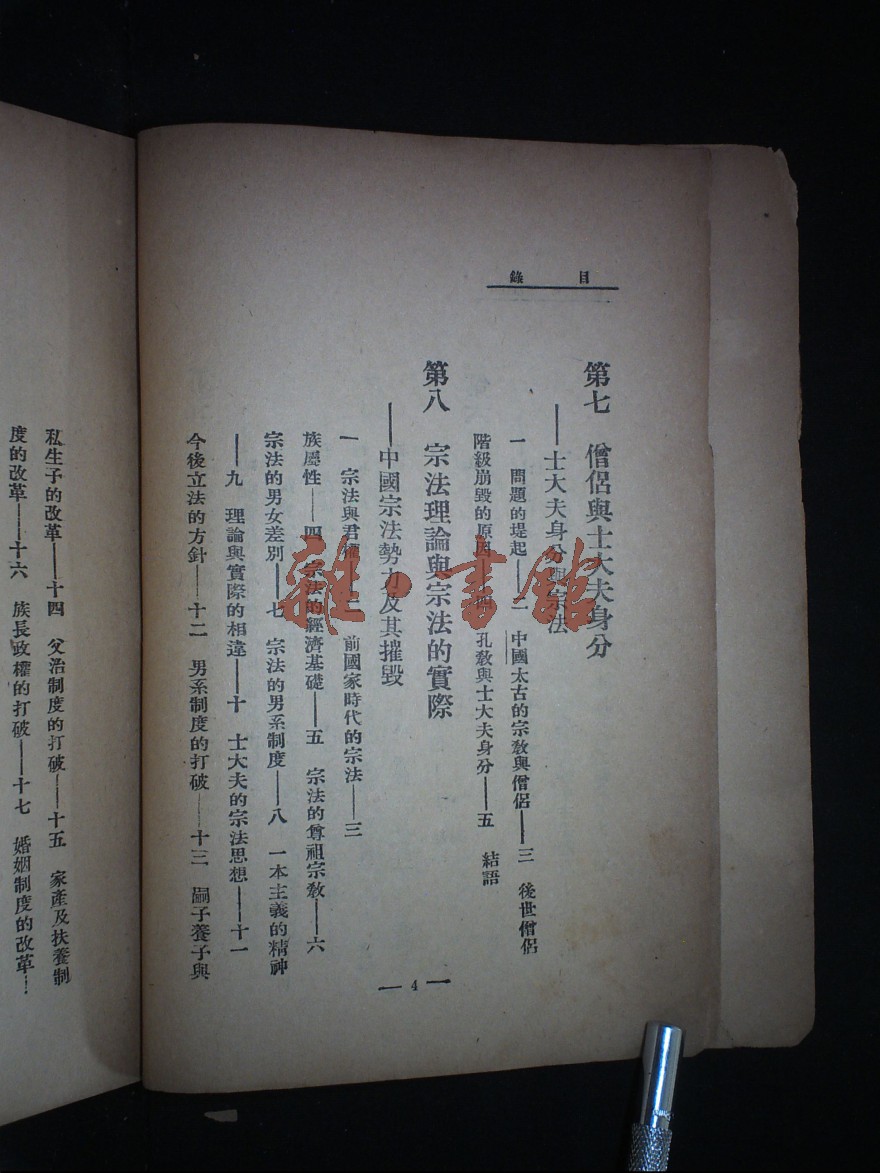 目錄
第七 僧侶與士大夫身分
——士大夫身分與宗法
一 問題的堤起——二 中國太古的宗教與僧侶——三 後世僧侶
階級崩毀的原因——四 孔教與士大夫身分——五 結語
第八 宗法理論與宗法的實際
——中國宗法勢力及其摧毀
一 宗法與君權——二 前國家時代的宗法——三
族屬性——四 宗法的經濟基礎——五 宗法的尊祖宗教——六
宗法的男女差別——七 宗法的男系制度——八 一本主義的精神
——九 理論與實際的相違——十 士大夫的宗法思想——十一
今後立法的方針——十二 男系制度的打破——十三 嗣子養子與
—4—
私生子的改革——十四 父治制度的打破——十五 家產及扶養制
度的改革——十六 族長政權的打破——十七 婚姻制度的改革…
雜·書館